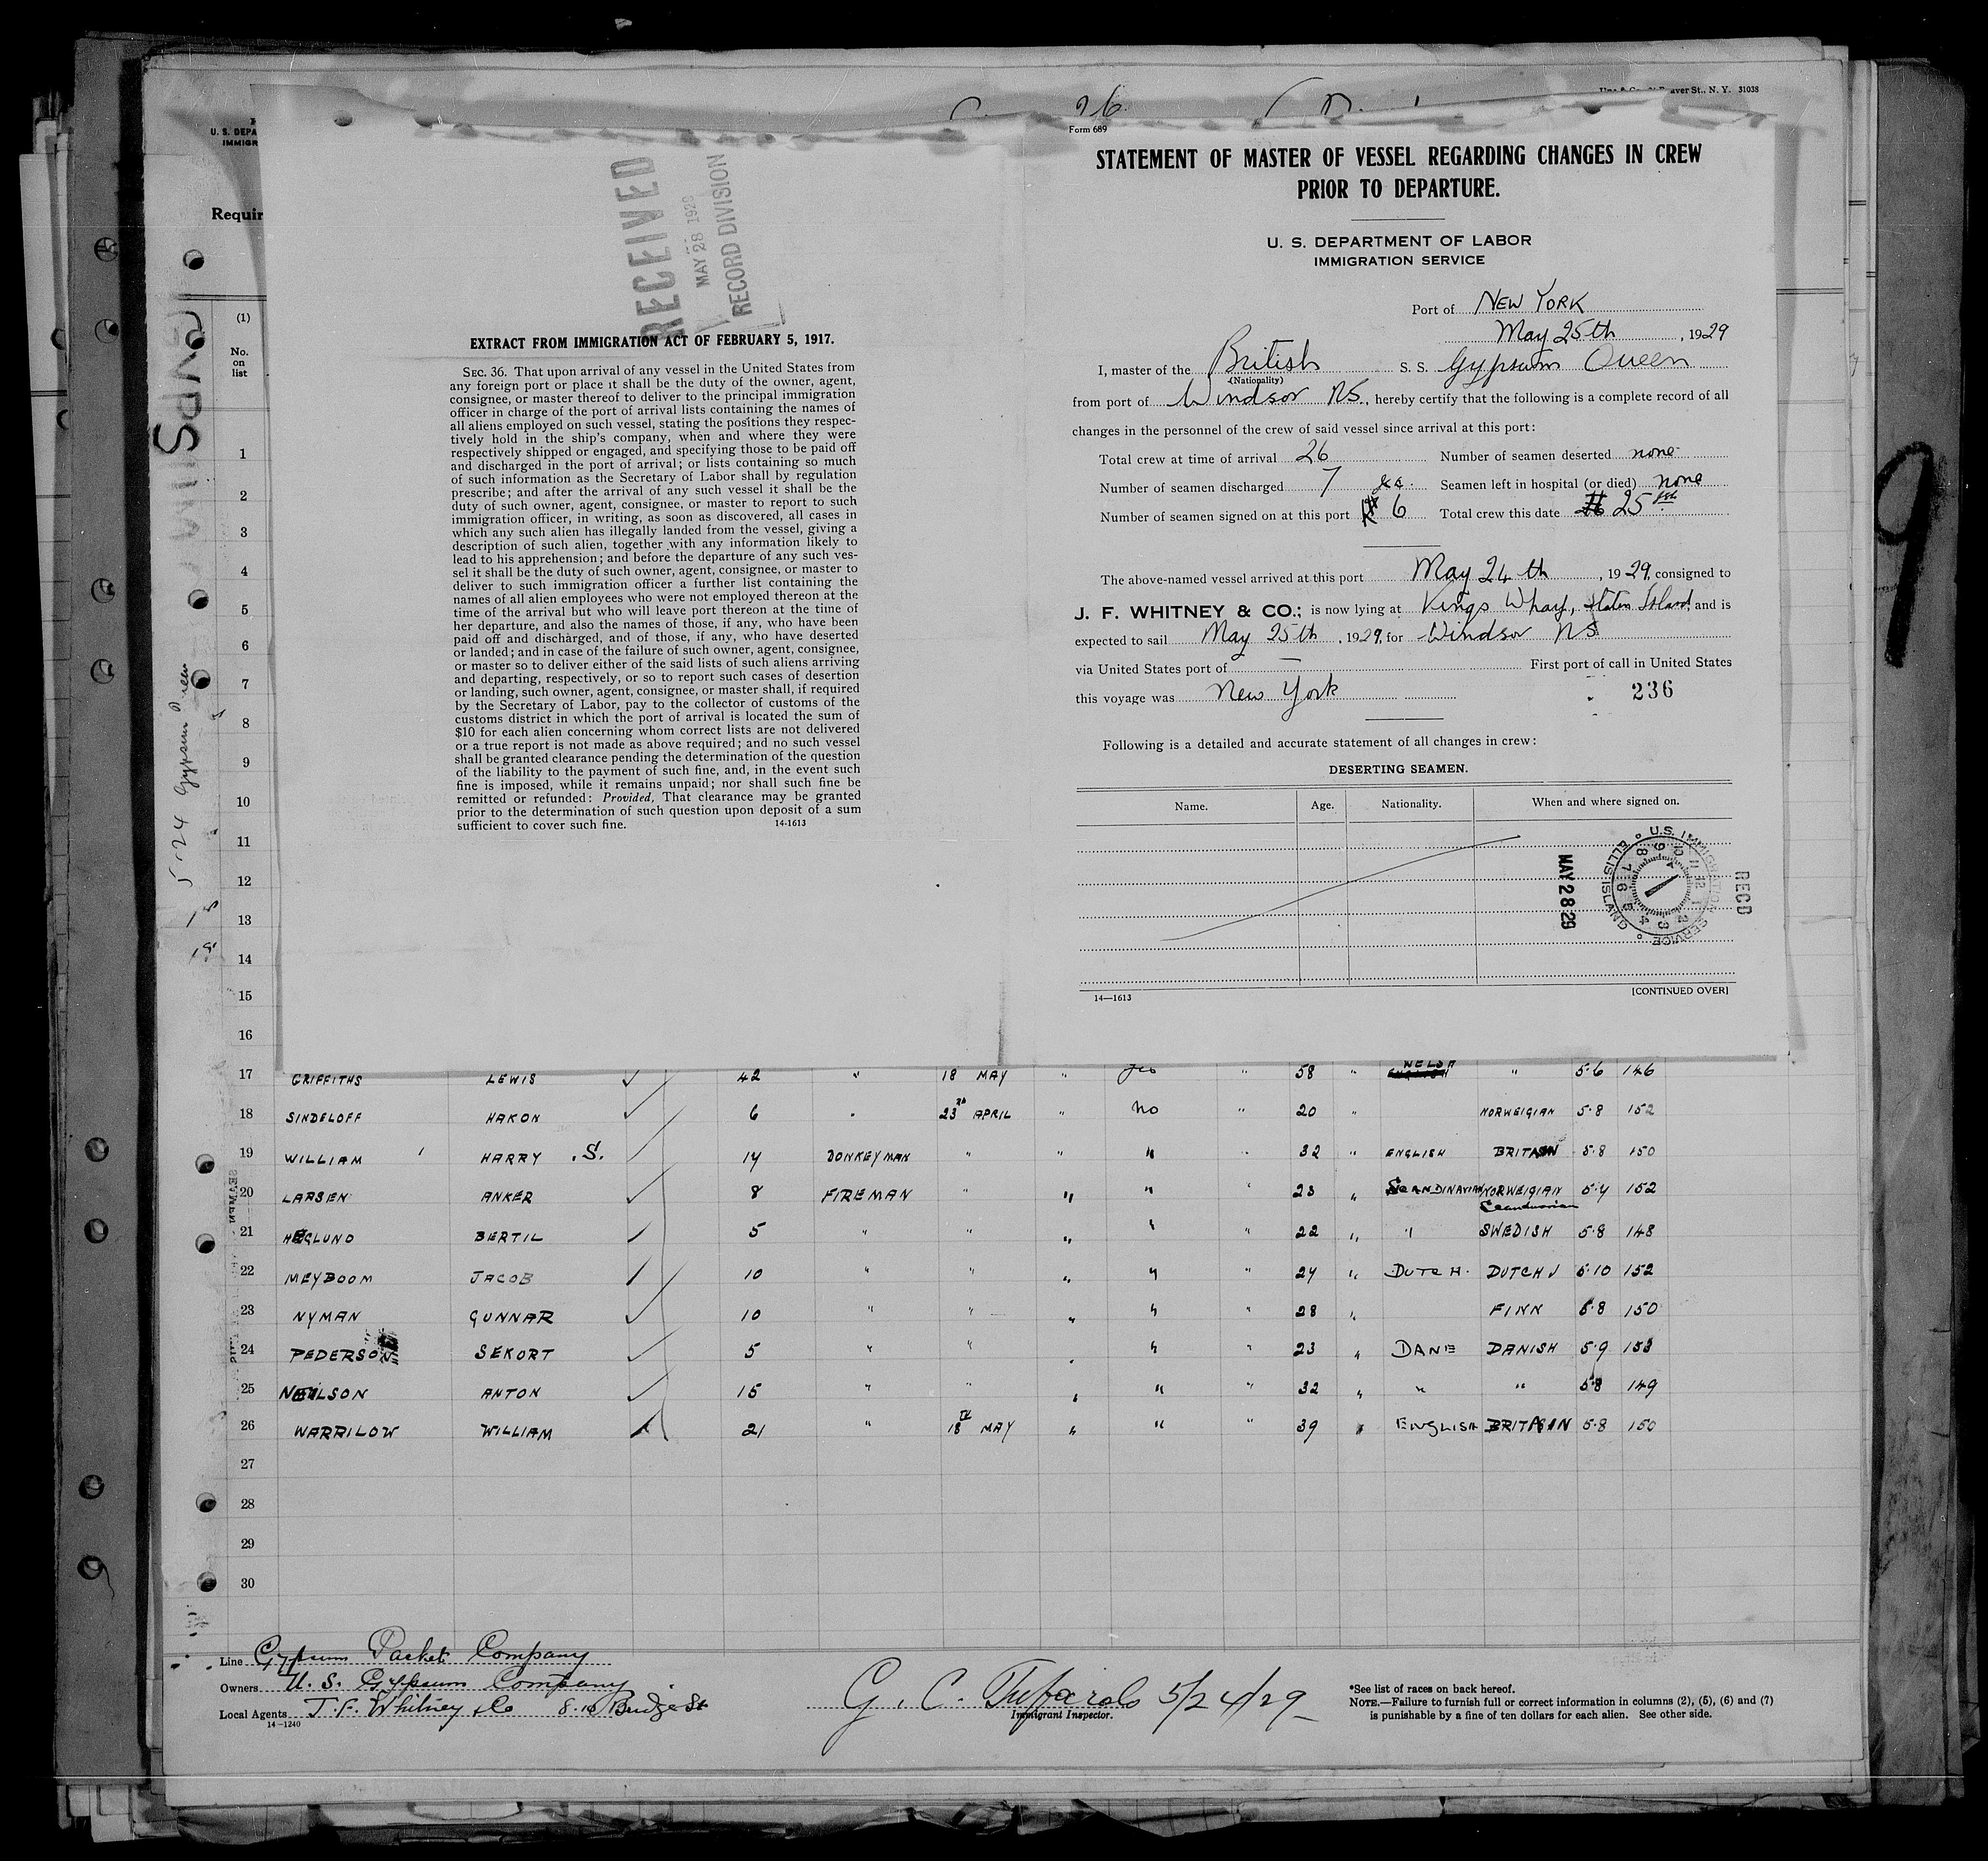 Form 689
STATEMENT OF MASTER OF VESSEL REGARDING CHANGES IN CREW
PRIOR TO DEPARTURE.
U. S. DEPARTMENT OF LABOR
IMMIGRATION SERVICE
Port of New York
May 25th, 1929
I, master of the British S. S. Gypsum Queen
(Nationality)
from port of Windsor NS., hereby certify that the following is a complete record of all
changes in the personnel of the crew of said vessel since arrival at this port:
Total crew at time of arrival 26 Number of seamen deserted none
Number of seamen discharged 7 Seamen left in hospital (or died) none
Number of seamen signed on at this port 6 Total crew this date 25
The above-named vessel arrived at this port May 24th, 1929, consigned to
J. F. WHITNEY & CO.; is now lying at Kings Wharf, Staten Island, and is
expected to sail May 25th, 1929, for Windsor NS
via United States port of — First port of call in United States
this voyage was New York 236
Following is a detailed and accurate statement of all changes in crew:
DESERTING SEAMEN.
Name. Age. Nationality. When and where signed on.
RECD
U.S. IMMIGRATION SERVICE
ELLIS ISLAND
MAY 28 29
14—1613 [CONTINUED OVER]
RECEIVED
MAY 28 1929
RECORD DIVISION
EXTRACT FROM IMMIGRATION ACT OF FEBRUARY 5, 1917.
SEC. 36. That upon arrival of any vessel in the United States from
any foreign port or place it shall be the duty of the owner, agent,
consignee, or master thereof to deliver to the principal immigration
officer in charge of the port of arrival lists containing the names of
all aliens employed on such vessel, stating the positions they respec-
tively hold in the ship's company, when and where they were
respectively shipped or engaged, and specifying those to be paid off
and discharged in the port of arrival; or lists containing so much
of such information as the Secretary of Labor shall by regulation
prescribe; and after the arrival of any such vessel it shall be the
duty of such owner, agent, consignee, or master to report to such
immigration officer, in writing, as soon as discovered, all cases in
which any such alien has illegally landed from the vessel, giving a
description of such alien, together with any information likely to
lead to his apprehension; and before the departure of any such ves-
sel it shall be the duty of such owner, agent, consignee, or master to
deliver to such immigration officer a further list containing the
names of all alien employees who were not employed thereon at the
time of the arrival but who will leave port thereon at the time of
her departure, and also the names of those, if any, who have been
paid off and discharged, and of those, if any, who have deserted
or landed; and in case of the failure of such owner, agent, consignee,
or master so to deliver either of the said lists of such aliens arriving
and departing, respectively, or so to report such cases of desertion
or landing, such owner, agent, consignee, or master shall, if required
by the Secretary of Labor, pay to the collector of customs of the
customs district in which the port of arrival is located the sum of
$10 for each alien concerning whom correct lists are not delivered
or a true report is not made as above required; and no such vessel
shall be granted clearance pending the determination of the question
of the liability to the payment of such fine, and, in the event such
fine is imposed, while it remains unpaid; nor shall such fine be
remitted or refunded: Provided, That clearance may be granted
prior to the determination of such question upon deposit of a sum
sufficient to cover such fine. 14-1613
(1)
No.
on
list
1
2
3
4
5
6
7
8
9
10
11
12
13
14
15
16
17 GRIFFITHS LEWIS 42 " 18 MAY " yes " 58 " WELSH " 5·6 146
18 SINDELOFF HAKON 6 " 23rd APRIL " No " 20 " NORWEIGIAN 5·8 152
19 WILLIAM HARRY .S. 14 DONKEYMAN " " " " 32 " ENGLISH BRITAIN 5·8 150
20 LARSEN ANKER 8 FIREMAN " " " " 23 " SCANDINAVIAN NORWEIGIAN 5·4 152
Scandinavian
21 HEGLUND BERTIL 5 " " " " " 22 " " SWEDISH 5·8 148
22 MEYBOOM JACOB 10 " " " " " 24 " DUTCH. DUTCH 5·10 152
23 NYMAN GUNNAR 10 " " " " " 28 " FINN 5·8 150
24 PEDERSON SEKORT 5 " " " " " 23 " DANE DANISH 5·9 153
25 NEILSON ANTON 15 " " " " " 32 " " " 5·8 149
26 WARRILOW WILLIAM 21 " 18th MAY " " " 39 " ENGLISH BRITAIN 5·8 150
27
28
29
30
Line Gypsum Packet Company
Owners U. S. Gypsum Company
Local Agents J. F. Whitney & Co 8-10 Bridge St
14-1240
5/24/29
Immigrant Inspector.
*See list of races on back hereof.
NOTE.—Failure to furnish full or correct information in columns (2), (5), (6) and (7)
is punishable by a fine of ten dollars for each alien. See other side.
5-24 Gypsum Queen
9